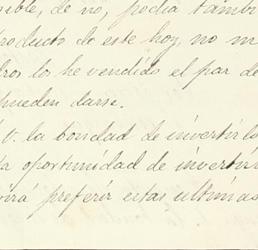 ible, de no, podia tambi
producto de este hoy, no m
dros los he vendido el par de
pueden darse.
V. la bondad de invertirlo
a oportunidad de invertir
irá preferir estas ultimas